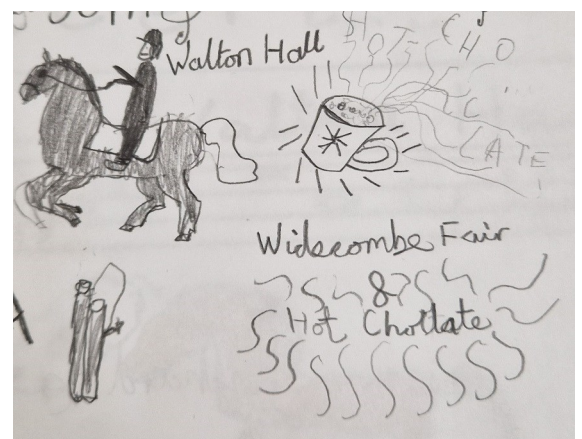 Walton Hall
HOT CHO
C
LATE
Widecombe Fair
&
Hot Chollate